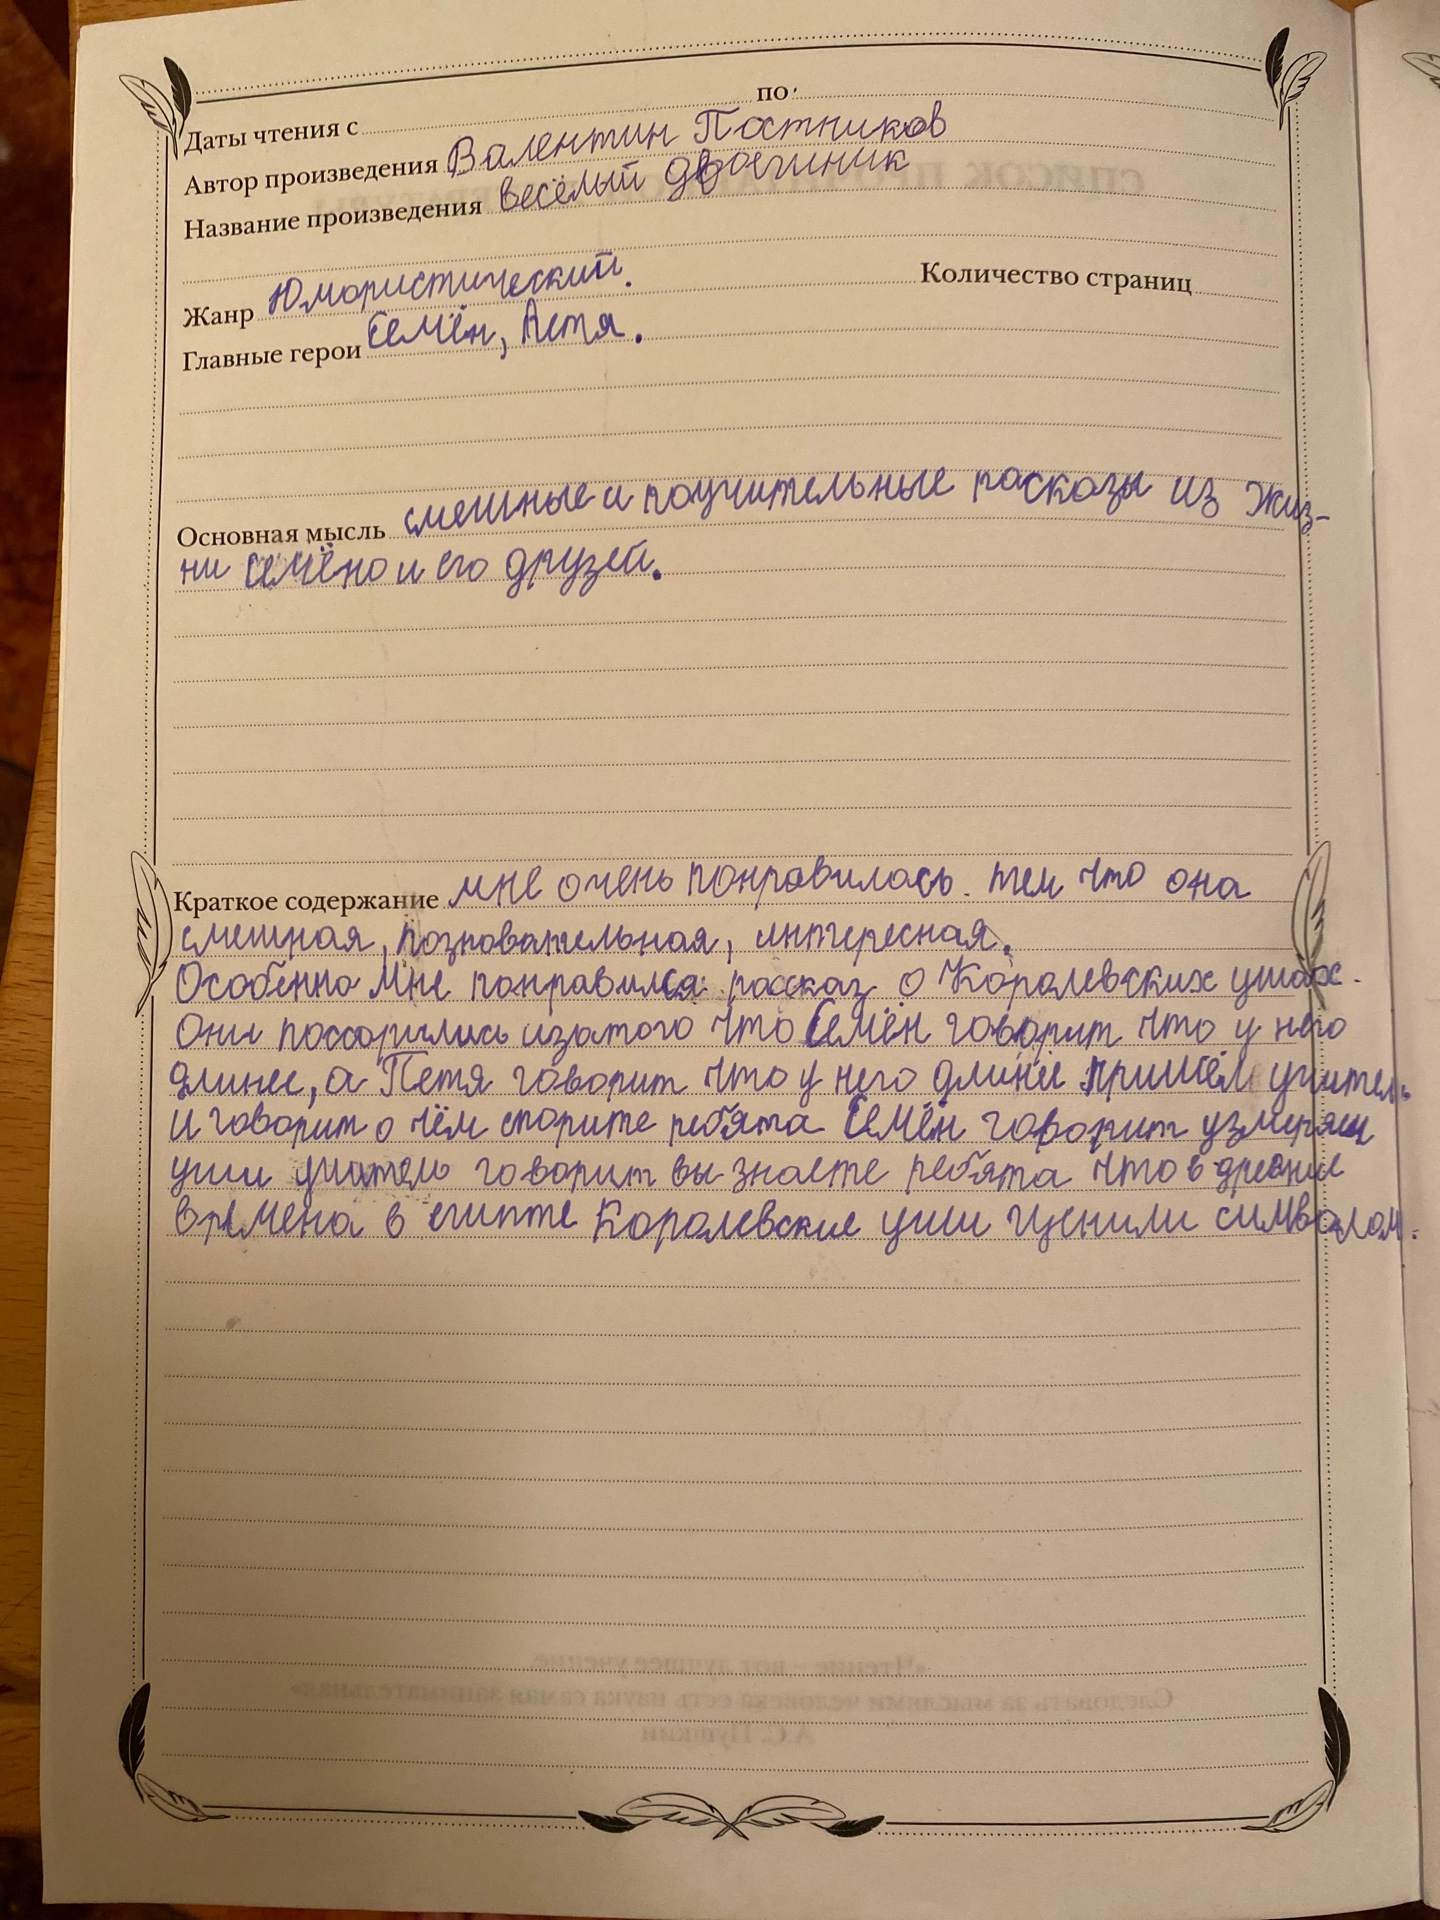 Даты чтения с по
Автор произведения Валентин Постников
Название произведения весёлый двоечиник
Жанр Юмористический. Количество страниц
Главные герои Семён, Петя.
Основная мысль смешные и поучительные расказы из жиз-
ни Семёна и его друзей.
Краткое содержание мне очень понравилась. тем что она
смешная, позновательная, интересная.
Особенно мне понравился рассказ о Королевских ушах.
Они поссорились изатого что Семён говорит что у него
длинее, а Петя говорит что у него длинее пришёл учитель
и говорит о чём спорите ребята Семён говорит узмеряем
уши учитель говорит вы знаете ребята что в древние
времена в египте Королевские уши ценили символом.